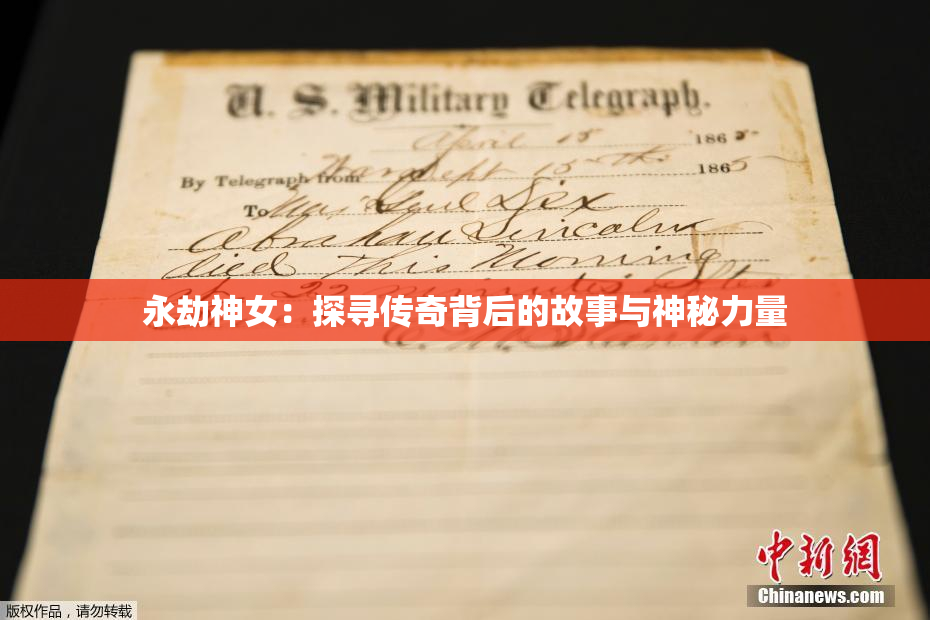 U. S. Military Telegraph.
April 15 1865
By Telegraph from War Dept 15th 1865
To Maj Genl Dix
Abraham Lincoln
died This Morning
at 22 minutes after
永劫神女：探寻传奇背后的故事与神秘力量
中新网
Chinanews.com
版权作品，请勿转载